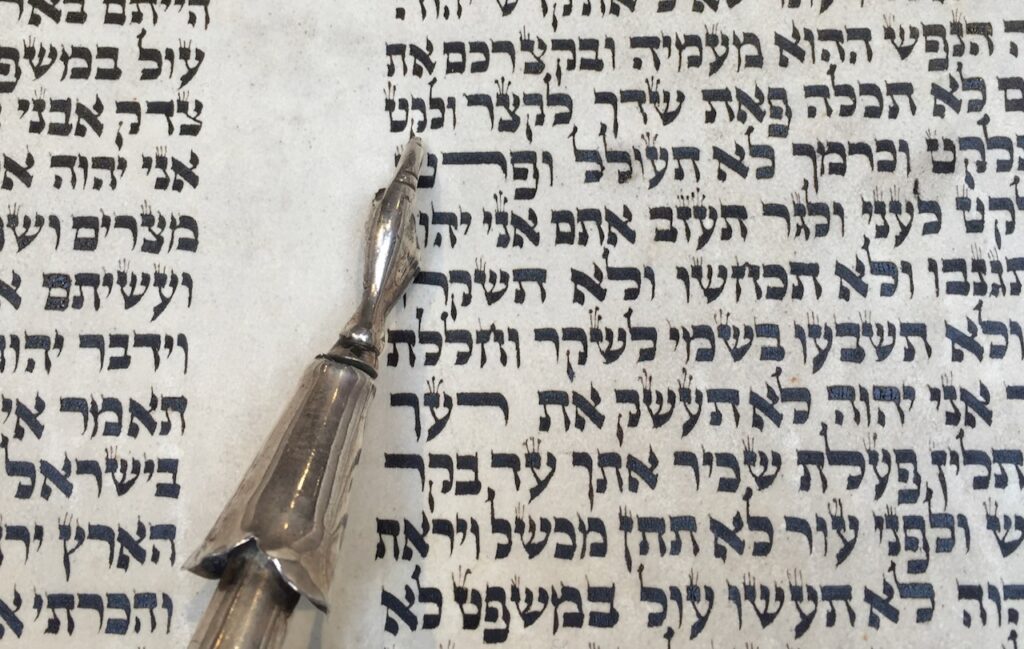 קדש יהוה
הנפש ההוא מעמיה ובקצרכם את
לא תכלה פאת שדך לקצר ולקט
לא תעולל וכרמך
לעני ולגר תעזב אתם אני
תגנבו ולא תכחשו ולא
ולא תשבעו בשמי לשקר וחללת
אני יהוה לא תעשק את רעך
תלין פעלת שכיר אתך עד בקר
ולפני עור לא תתן מכשל ויראת
יהוה לא תעשו עול במשפט לא
הייתם
עול
צדק אבני
אני יהוה
מצרים
ועשיתם
וידבר
תאמר
בישראל
הארץ
והכרתי